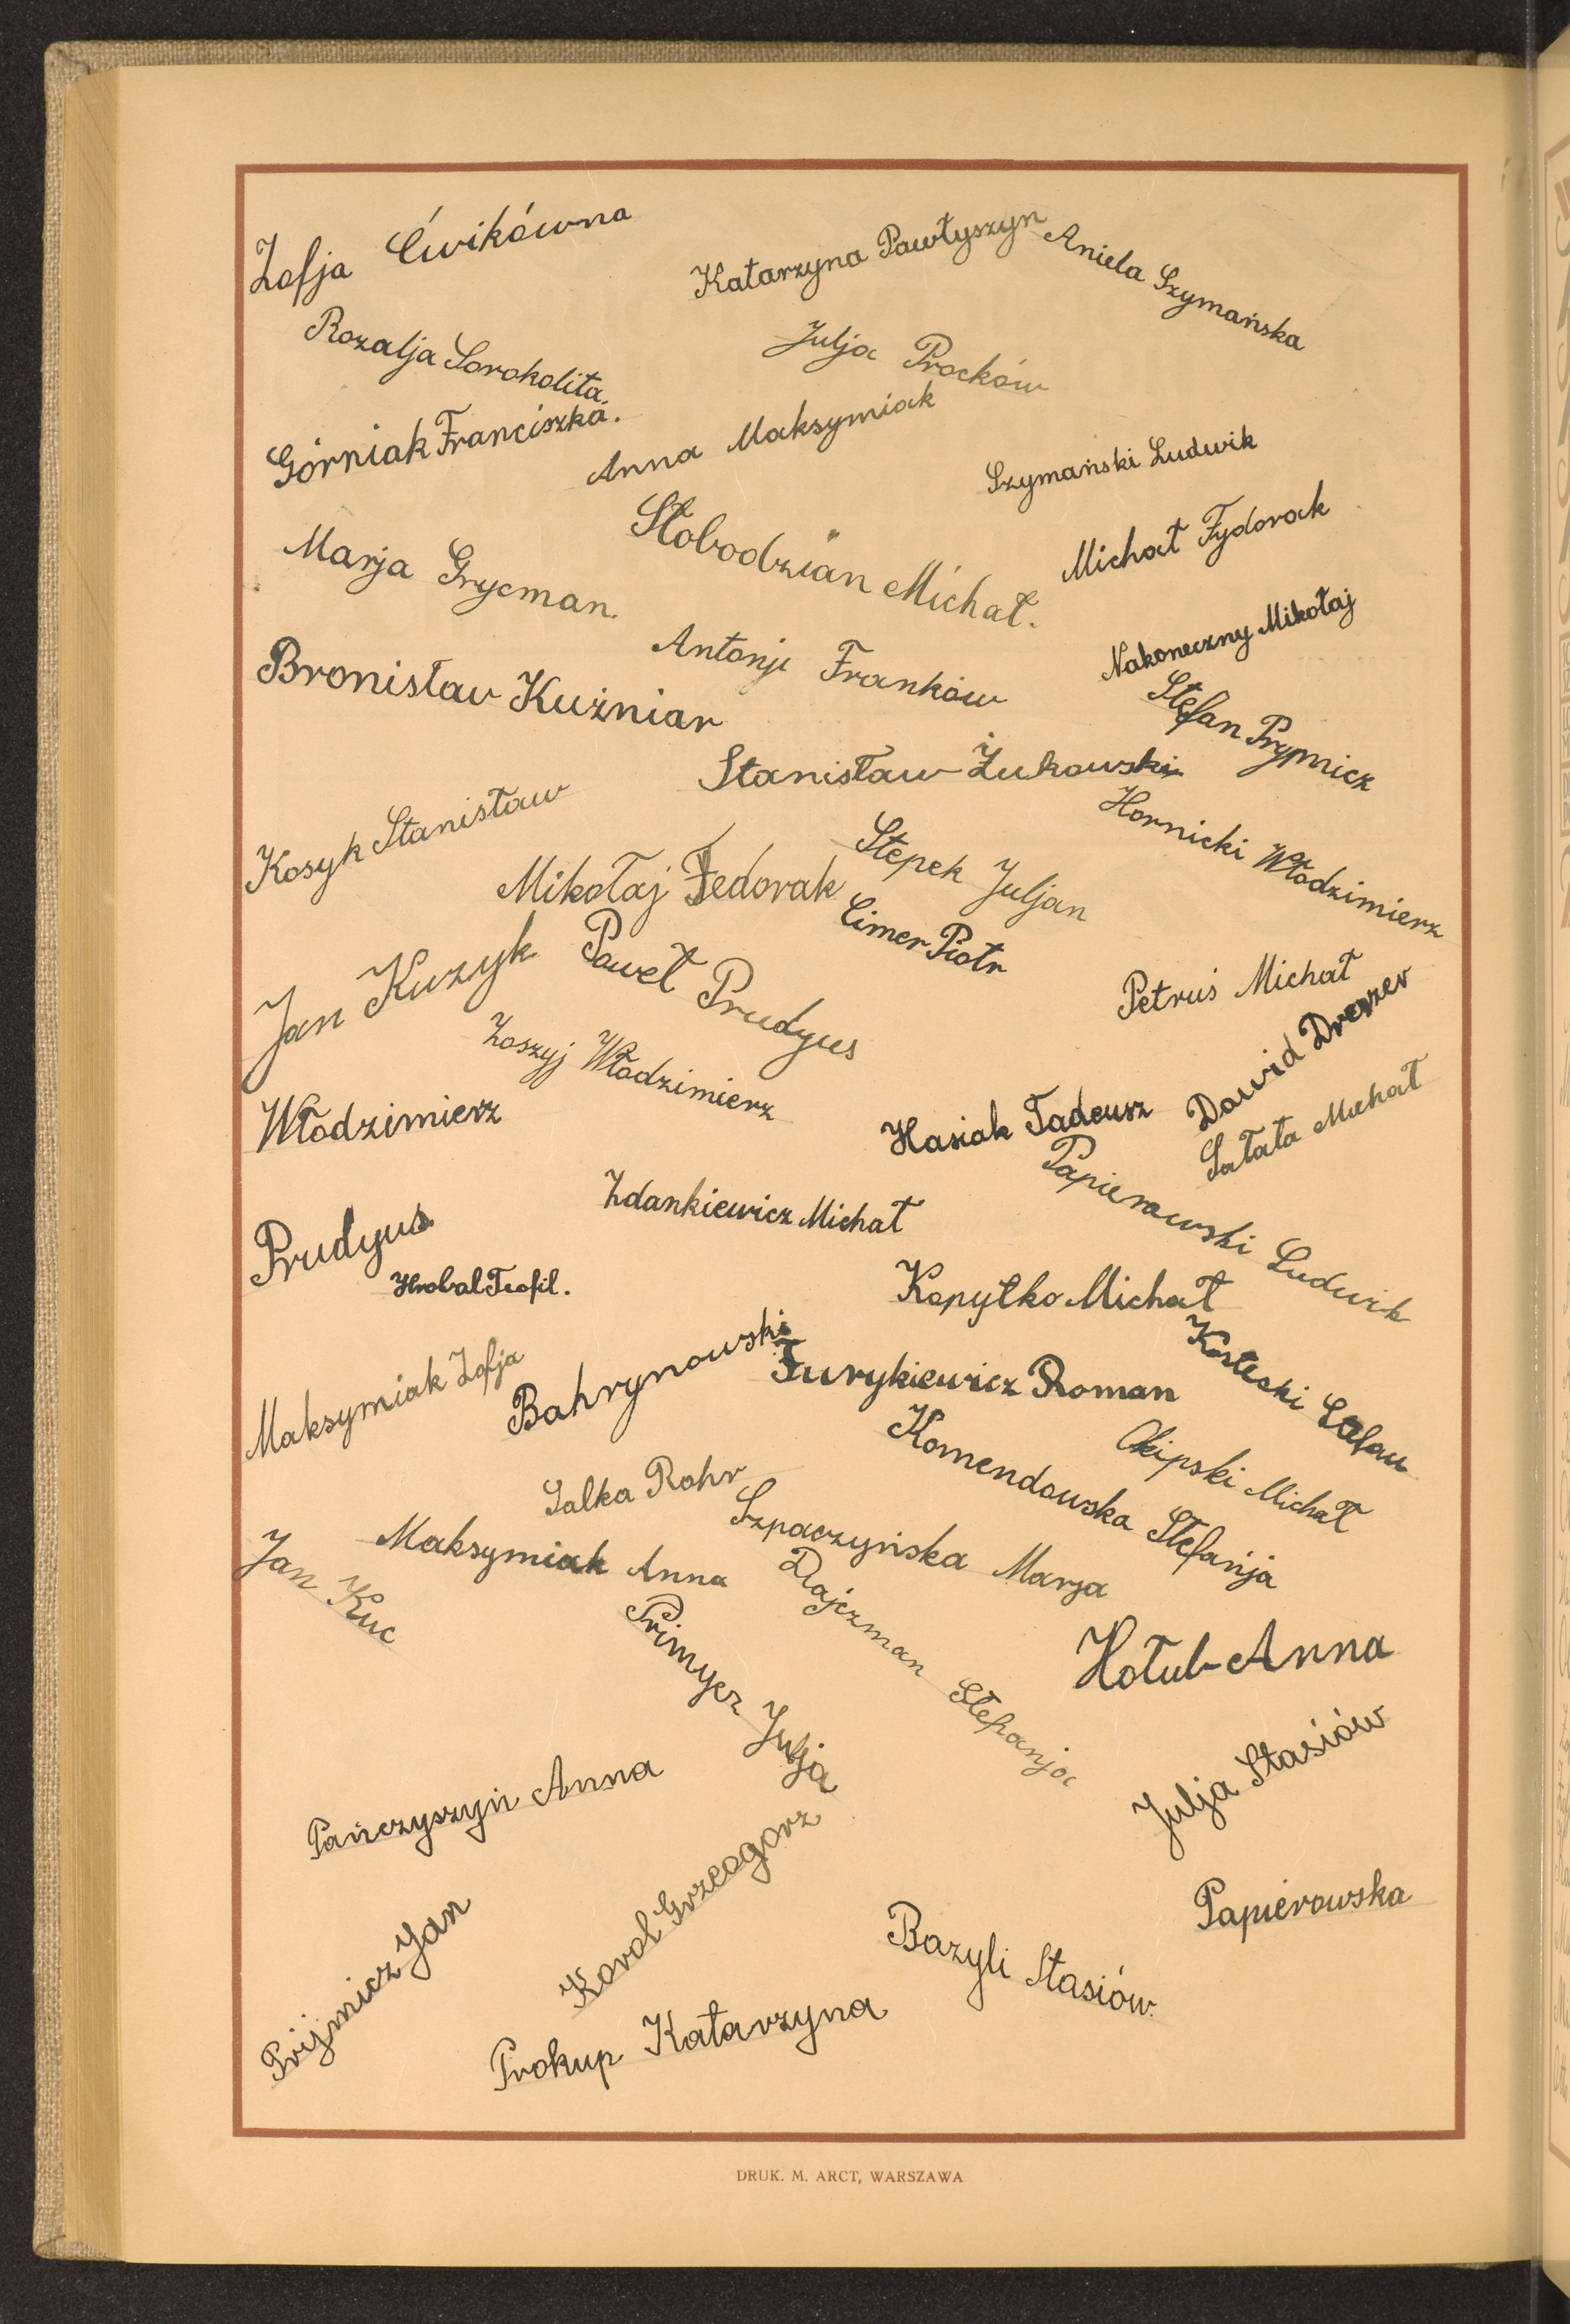 Zofja Ćwikówna
Katarzyna Pawłyszyn
Aniela Szymańska
Rozalja Sorokolita.
Julja Procków
Górniak Franciszka.
Anna Maksymiak
Szymański Ludwik
Słobodzian Michał.
Michał Fydorak
Marja Grycman.
Antonji Franków
Nakoneczny Mikołaj
Bronisław Kuźniar
Stefan Prypnicz
Stanisław Żukowski
Kosyk Stanisław
Hornicki Włodzimierz
Mikołaj Fedorak
Stepek Juljan
Cimer Piotr
Jan Kuzyk
Paweł Prudyus
Petruś Michał
Zoszyj Włodzimierz
Dawid Drezzer
Włodzimierz
Hasiak Tadeusz
Sałata Michał
Papierowski Ludwik
Zdankiewicz Michał
Prudyus
Hrobal Teofil.
Kopytko Michał
Maksymiak Zofja
Bahrynowski
Furykiewicz Roman
Komendowska Stefanja
Michał
Salka Rohr
Szpaczyńska Marja
Maksymiak Anna
Jan Kuc
Dajczman Stefanja
Primycz Julja
Hołub Anna
Pańczyszyń Anna
Julja Stasiów
Korol Grzeogorz
Papierowska
Prijmicz Jan
Bazyli Stasiów.
Prokup Katarzyna
DRUK. M. ARCT, WARSZAWA